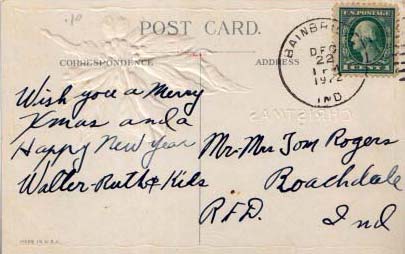 .10
POST CARD.
CORRESPONDENCE
ADDRESS
BAINBRI
DEC
22
1 P
1912
IND
U.S. POSTAGE
1 CENT 1
CHRISTMAS
Wish you a Merry
Xmas and a
Happy New Year
Walter-Ruth & Kids
Mr-Mrs Tom Rogers
Roachdale
R.F.D. Ind
MADE IN U.S.A.